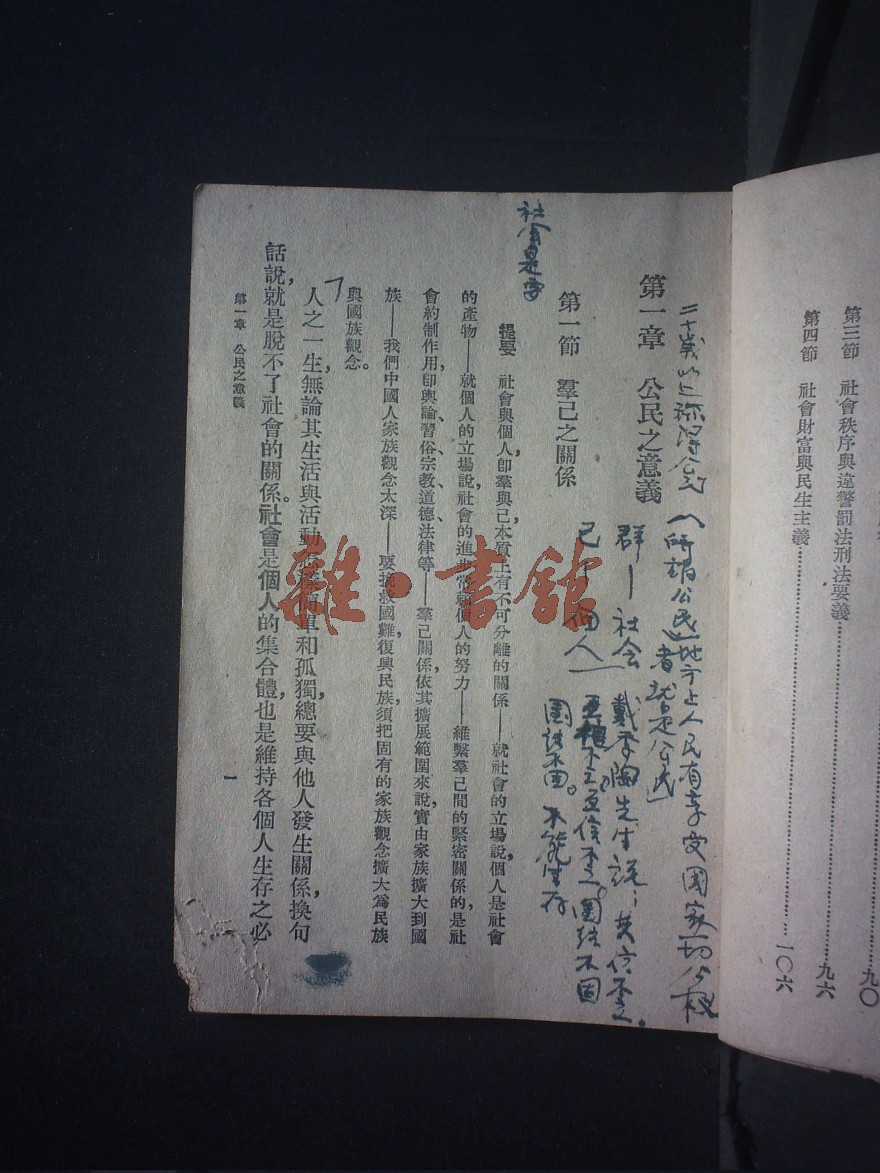 第三節　社會秩序與違警罰法刑法要義……九〇
第四節　社會財富與民生主義……九六
……一〇六
二十歲以上 公民（所謂公民 地方上人民有享受國家一切公权
者就是公民」
第一章　公民之意義
群—社会　戴季陶先生說：共信不立。
己　個人　互信不立。團结不固
第一節　羣己之關係
團结不固。不能生存
社會是
提要　社會與個人卽羣與己本質上有不可分離的關係——就社會的立場說，個人是社會
的產物——就個人的立場說，社會的進 個人的努力——維繫羣己間的緊密關係的，是社
會約制作用，卽輿論、習俗、宗教、道德、法律等——羣己關係，依其擴展範圍來說，實由家族擴大到國
族——我們中國人家族觀念太深——要挽救國難，復興民族，須把固有的家族觀念擴大爲民族
與國族觀念。
人之一生，無論其生活與活動 單和孤獨，總要與他人發生關係，換句
話說，就是脫不了社會的關係。社會是個人的集合體，也是維持各個人生存之必
第一章　公民之意義
一
雜·書館